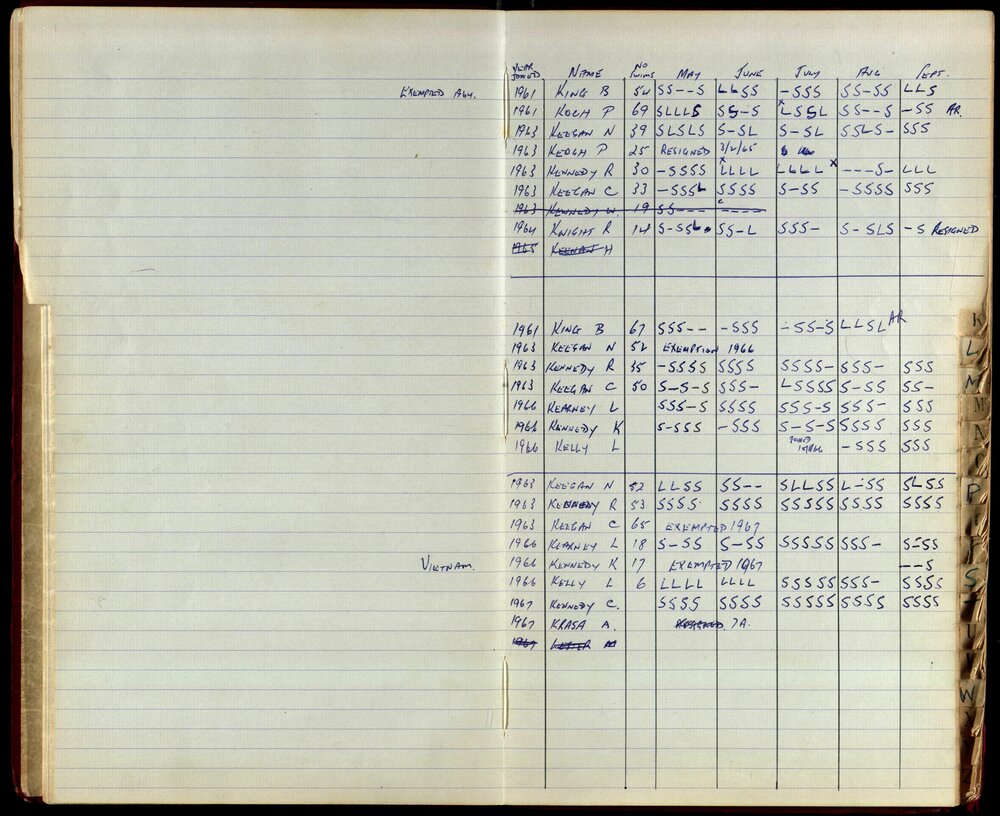 YEAR JOINED NAME NO SWIMS MAY JUNE JULY AUG SEPT.
EXEMPTED AUG. 1961 KING B 54 SS--S LLSS -SSS SS-SS LLS
1961 KOCH P 69 SLLLS SS-S LSSL SS--S -SS AR.
1963 KEEGAN N 39 SLSLS S-SL S-SL SSLS- SSS
1963 KEOGH P 25 RESIGNED 3/2/65
1963 KENNEDY R 30 -SSSS X LLLL LLLL X ---S- LLL
1963 KEEGAN C 33 -SSSL SSSS S-SS -SSSS SSS
1963 KENNEDY W. 19 SS--- C ----
1964 KNIGHT R 14 S-SSL SS-L SSS- S-SLS -S RESIGNED
1965 KEENAN H
1961 KING B 67 SSS-- -SSS -SS-S LLSL AR
1963 KEEGAN N 52 EXEMPTION 1966
1963 KENNEDY R 35 -SSSS SSSS SSSS- SSS- SSS
1963 KEEGAN C 50 S-S-S SSS- LSSSS S-SS SS-
1966 KEARNEY L SSS-S SSSS SSS-S SSS- SSS
1966 KENNEDY K S-SSS -SSS S-S-S SSSS SSS
1966 KELLY L JOINED -SSS SSS
1963 KEEGAN N 52 LLSS SS-- SLLSS L-SS SLSS
1963 KENNEDY R 53 SSSS SSSS SSSSS SSSS SSSS
1963 KEEGAN C 65 EXEMPTED 1967
1966 KEARNEY L 18 S-SS S-SS SSSSS SSS- S-SS
VIETNAM. 1966 KENNEDY K 17 EXEMPTED 1967 ---S
1966 KELLY L 6 LLLL LLLL SSSSS SSS- SSSS
1967 KENNEDY C. SSSS SSSS SSSSS SSSS SSSS
1967 KRASA A. JA.
1967
K
L
M
M
N
P
S
T
U
W
Y